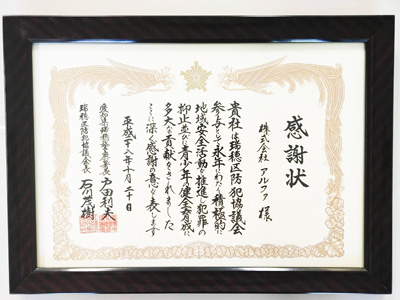 感謝状
株式会社 アルファ 様
貴社は瑞穂区防犯協議会
参与として永年にわたり積極的に
地域安全活動を推進し犯罪の
抑止並びに青少年の健全育成に
多大な貢献をされました
ここに深く感謝の意を表します
平成二十八年十月二十日
愛知県瑞穂警察署長 戸田利夫
瑞穂区防犯協議会長 石川茂樹